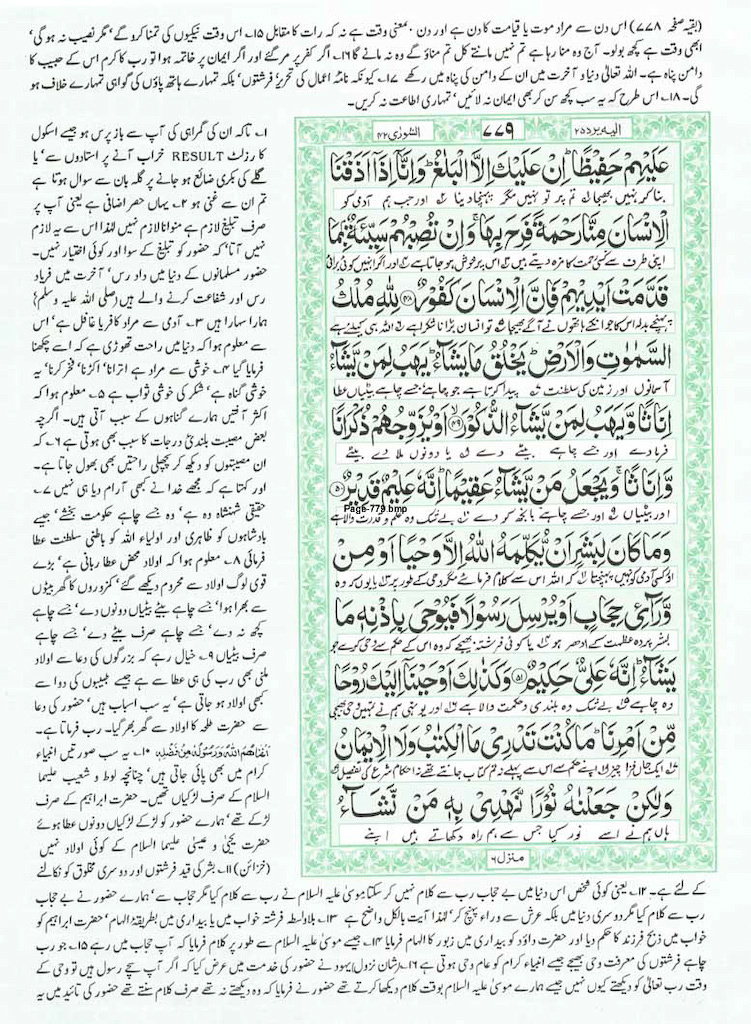 (بقیہ صفحہ ۷۷۸) اس دن سے مراد موت یا قیامت کا دن ہے اور دن ۔بمعنی وقت ہے نہ کہ رات کا مقابل ۱۵۔ اس وقت نیکیوں کی تمنا کرو گے، مگر نصیب نہ ہو گی،
ابھی وقت ہے کچھ بولو۔ آج وہ منا رہا ہے تم نہیں مانتے کل تم مناؤ گے وہ نہ مانے گا ۱۶۔ اگر کفر پر مر گئے اور اگر ایمان پر خاتمہ ہوا تو رب کا کرم اس کے حبیب کا
دامن پناہ ہے۔ اللہ تعالٰی دنیا و آخرت میں ان کے دامن کی پناہ میں رکھے ۱۷۔ کیونکہ نامۂ اعمال کی تحریر، فرشتوں، بلکہ تمہارے ہاتھ پاؤں کی گواہی تمہارے خلاف ہو
گی۔ ۱۸۔ اس طرح کہ یہ سب کچھ سن کر بھی ایمان نہ لائیں، تمہاری اطاعت نہ کریں۔
الیہ یرد ۲۵
۷۷۹
الشورٰی ۴۲
عَلَيْهِمْ حَفِيْظًا ؕ اِنْ عَلَيْكَ اِلَّا الْبَلٰغُ ؕ وَاِنَّاۤ اِذَاۤ اَذَقْنَا
بنا کر نہیں بھیجا تم پر تو نہیں مگر پہنچا دینا اور جب ہم آدمی کو
الْاِنْسَانَ مِنَّا رَحْمَةً فَرِحَ بِهَا ۚ وَاِنْ تُصِبْهُمْ سَيِّئَةٌۢ بِمَا
اپنی طرف سے کسی رحمت کا مزہ دیتے ہیں اس پر خوش ہو جاتا ہے اور اگر انہیں کوئی برائی
قَدَّمَتْ اَيْدِيْهِمْ فَاِنَّ الْاِنْسَانَ كَفُوْرٌ ۝۴۸ لِلّٰهِ مُلْكُ
پہنچے بدلہ اس کا جو انکے ہاتھوں نے آگے بھیجا تو انسان بڑا ناشکرا ہے اللہ ہی کیلئے ہے
السَّمٰوٰتِ وَالْاَرْضِ ؕ يَخْلُقُ مَا يَشَآءُ ؕ يَهَبُ لِمَنْ يَّشَآءُ
آسمانوں اور زمین کی سلطنت پیدا کرتا ہے جو چاہے جسے چاہے بیٹیاں عطا
اِنَاثًا وَّيَهَبُ لِمَنْ يَّشَآءُ الذُّكُوْرَ ۝۴۹ اَوْ يُزَوِّجُهُمْ ذُكْرَانًا
فرمائے اور جسے چاہے بیٹے دے یا دونوں ملا دے بیٹے
وَّاِنَاثًا ۚ وَيَجْعَلُ مَنْ يَّشَآءُ عَقِيْمًا ؕ اِنَّهٗ عَلِيْمٌ قَدِيْرٌ ۝۵۰
Page-779.bmp
اور بیٹیاں اور جسے چاہے بانجھ کر دے بے شک وہ علم و قدرت والا ہے
وَمَا كَانَ لِبَشَرٍ اَنْ يُّكَلِّمَهُ اللّٰهُ اِلَّا وَحْيًا اَوْ مِنْ
اور کسی آدمی کو نہیں پہنچتا کہ اللہ اس سے کلام فرمائے مگر وحی کے طور پر یا یوں کہ وہ
وَّرَآئِ حِجَابٍ اَوْ يُرْسِلَ رَسُوْلًا فَيُوْحِيَ بِاِذْنِهٖ مَا
بشر پردۂ عظمت کے ادھر ہو یا کوئی فرشتہ بھیجے کہ وہ اس کے حکم سے وحی کرے جو
يَشَآءُ ؕ اِنَّهٗ عَلِيٌّ حَكِيْمٌ ۝۵۱ وَكَذٰلِكَ اَوْحَيْنَاۤ اِلَيْكَ رُوْحًا
وہ چاہے بے شک وہ بلندی و حکمت والا ہے اور یونہی ہم نے تمہیں وحی بھیجی
مِّنْ اَمْرِنَا ؕ مَا كُنْتَ تَدْرِيْ مَا الْكِتٰبُ وَلَا الْاِيْمَانُ
ایک جاں فزا چیز اپنے حکم سے اس سے پہلے نہ تم کتاب جانتے تھے نہ احکام شرع کی تفصیل
وَلٰكِنْ جَعَلْنٰهُ نُوْرًا نَّهْدِيْ بِهٖ مَنْ نَّشَآءُ
ہاں ہم نے اسے نور کیا جس سے ہم راہ دکھاتے ہیں اپنے
منزل ۶
۱۔ تاکہ ان کی گمراہی کی آپ سے باز پرس ہو جیسے اسکول
کا رزلٹ RESULT خراب آنے پر استادوں سے، یا
گلے کی بکری ضائع ہو جانے پر گلہ بان سے سوال ہوتا ہے
تم ان سے غنی ہو ۲۔ یہاں حصر اضافی ہے یعنی آپ پر
صرف تبلیغ لازم ہے منوانا لازم نہیں لہٰذا اس سے یہ لازم
نہیں آتا، کہ حضور کو تبلیغ کے سوا اور کوئی اختیار نہیں۔
حضور مسلمانوں کے دنیا میں داد رس، آخرت میں فریاد
رس اور شفاعت کرنے والے ہیں (صلی اللہ علیہ وسلم)
ہمارا سہارا ہیں ۳۔ آدمی سے مراد کافر یا غافل ہے، اس
سے معلوم ہوا کہ دنیا میں راحت تھوڑی ہے کہ اسے چکھنا
فرمایا گیا ۴۔ خوشی سے مراد ہے اترانا، اکڑنا، فخر کرنا، یہ
خوشی گناہ ہے، شکر کی خوشی ثواب ہے ۵۔ معلوم ہوا کہ
اکثر آفتیں ہمارے گناہوں کے سبب آتی ہیں۔ اگرچہ
بعض مصیبت بلندیٔ درجات کا سبب بھی ہوتی ہے ۶۔ کہ
ان مصیبتوں کو دیکھ کر پچھلی راحتیں بھی بھول جاتا ہے۔
اور کہتا ہے کہ مجھے خدا نے کبھی آرام دیا ہی نہیں ۷۔
حقیقی شہنشاہ وہ ہے، وہ جسے چاہے حکومت بخشے، جیسے
بادشاہوں کو ظاہری اور اولیاء اللہ کو باطنی سلطنت عطا
فرمائی ۸۔ معلوم ہوا کہ اولاد محض عطا ربانی ہے، بڑے
قوی لوگ اولاد سے محروم دیکھے گئے، کمزوروں کا گھر بیٹوں
سے بھرا ہوا، جسے چاہے بیٹے بیٹیاں دونوں دے، جسے چاہے
کچھ نہ دے، جسے چاہے صرف بیٹے دے، جسے چاہے
صرف بیٹیاں ۹۔ خیال رہے کہ بزرگوں کی دعا سے اولاد
ملنی بھی رب کی ہی عطا سے ہے جیسے طبیبوں کی دوا سے
کبھی اولاد ہو جاتی ہے، یہ سب اسباب ہیں، حضور کی دعا
سے حضرت طلحہ کا اولاد سے گھر بھر گیا۔ رب فرماتا ہے۔
اَغْنٰهُمُ اللّٰهُ وَرَسُوْلُهٗ مِنْ فَضْلِهٖ ۱۰۔ یہ سب صورتیں انبیاء
کرام میں بھی پائی جاتی ہیں، چنانچہ لوط و شعیب علیہما
السلام کے صرف لڑکیاں تھیں۔ حضرت ابراہیم کے صرف
لڑکے تھے، ہمارے حضور کو لڑکے لڑکیاں دونوں عطا ہوئے
حضرت یحییٰ و عیسیٰ علیہما السلام کے کوئی اولاد نہیں
(خزائن) ۱۱۔ بشر کی قید فرشتوں اور دوسری مخلوق کو نکالنے
کے لئے ہے۔ ۱۲۔ یعنی کوئی شخص اس دنیا میں بے حجاب رب سے کلام نہیں کر سکتا موسیٰ علیہ السلام نے رب سے کلام کیا مگر حجاب سے، ہمارے حضور نے بے حجاب
رب سے کلام کیا مگر دوسری دنیا میں بلکہ عرش سے وراء پہنچ کر، لہٰذا آیت بالکل واضح ہے ۱۳۔ بلاواسطہ فرشتہ خواب میں یا بیداری میں بطریقۂ الہام، حضرت ابراہیم کو
خواب میں ذبح فرزند کا حکم دیا اور حضرت داؤد کو بیداری میں زبور کا الہام فرمایا ۱۴۔ جیسے موسیٰ علیہ السلام سے طور پر کلام فرمایا کہ آپ حجاب میں رہے ۱۵۔ جو رب
چاہے فرشتوں کی معرفت وحی بھیجے جیسے انبیاء کرام کو عام وحی ہوتی ہے ۱۶۔ (شان نزول) یہود نے حضور کی خدمت میں عرض کیا کہ اگر آپ سچے رسول ہیں تو وحی کے
وقت رب تعالٰی کو دیکھتے کیوں نہیں جیسے ہمارے موسیٰ علیہ السلام بوقت کلام دیکھا کرتے تھے حضور نے فرمایا کہ وہ دیکھتے نہ تھے صرف کلام سنتے تھے حضور کی تائید میں یہ